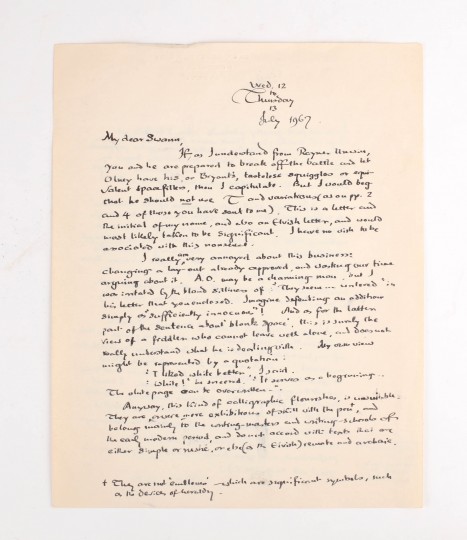 Wed. 12
to
Thursday
13
July 1967
My dear Swann,
If as I understand from Rayner Unwin,
you and he are prepared to break off the battle and let
have his or Bryant's, tasteless squiggles or equi-
valent spacefillers, then I capitulate. But I would beg
that he should not use and variations (as on pp. 2
and 4 of those you have sent to me). This is a letter and
the initial of my name, and also an Elvish letter, and would
most likely be taken to be significant. I have no wish to be
associated with this nonsense.
I really am very annoyed about this business:
changing a lay-out already approved, and wasting our time
arguing about it. A.O. may be a charming man, but I
was irritated by the bland silliness of 'They seem — unlovely' in
his letter that you enclosed. Imagine defending an addition
simply as 'sufficiently innocuous'! And as for the latter
part of the sentence about 'blank space', this is surely the
view of a fiddler who cannot leave well alone, and does not
really understand what he is dealing with. My own view
might be represented by a quotation:
"I liked white better", I said.
"White!" he sneered. "It serves as a beginning...
The white page can be overwritten..."
Anyway, this kind of calligraphic flourishes, is unsuitable.
They are mere exhibitions of skill with the pen, and
belong mainly to the writing-masters and writing-schools of
the early modern period, and do not accord with texts that are
either simple or rustic, or else (as the Elvish) remote and archaic.
† They are not 'emblems' – which are significant symbols, such
as the devices of heraldry.